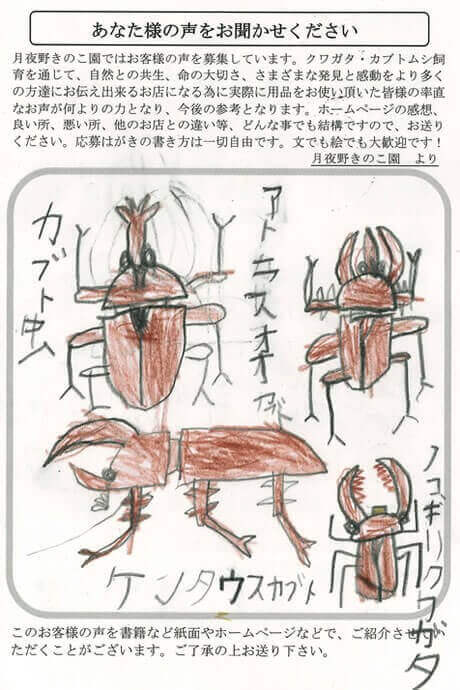 あなた様の声をお聞かせください
月夜野きのこ園ではお客様の声を募集しています。クワガタ・カブトムシ飼
育を通じて、自然との共生、命の大切さ、さまざまな発見と感動をより多く
の方達にお伝え出来るお店になる為に実際に用品をお使い頂いた皆様の率直
なお声が何よりの力となり、今後の参考となります。ホームページの感想、
良い所、悪い所、他のお店との違い等、どんな事でも結構ですので、お送り
ください。応募はがきの書き方は一切自由です。文でも絵でも大歓迎です！
月夜野きのこ園　より
カブト虫
ケンタウスカブト
ノコギリクワガタ
このお客様の声を書籍など紙面やホームページなどで、ご紹介させていた
だくことがございます。ご了承の上お送り下さい。